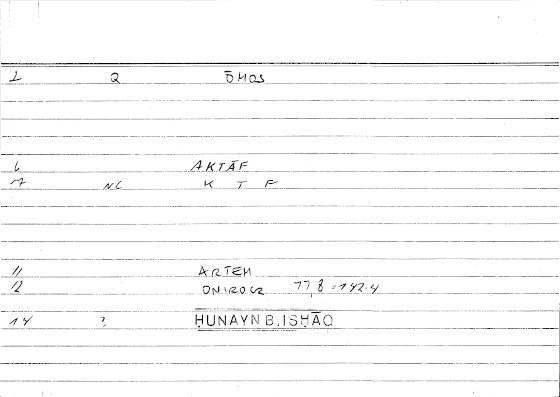 2 Q ŌMOS
6 AKTĀF
7 NC K T F
11 ARTEM
12 ONIROCR 77,8 = 142.4
14 ? ḤUNAYN B. ISḤĀQ